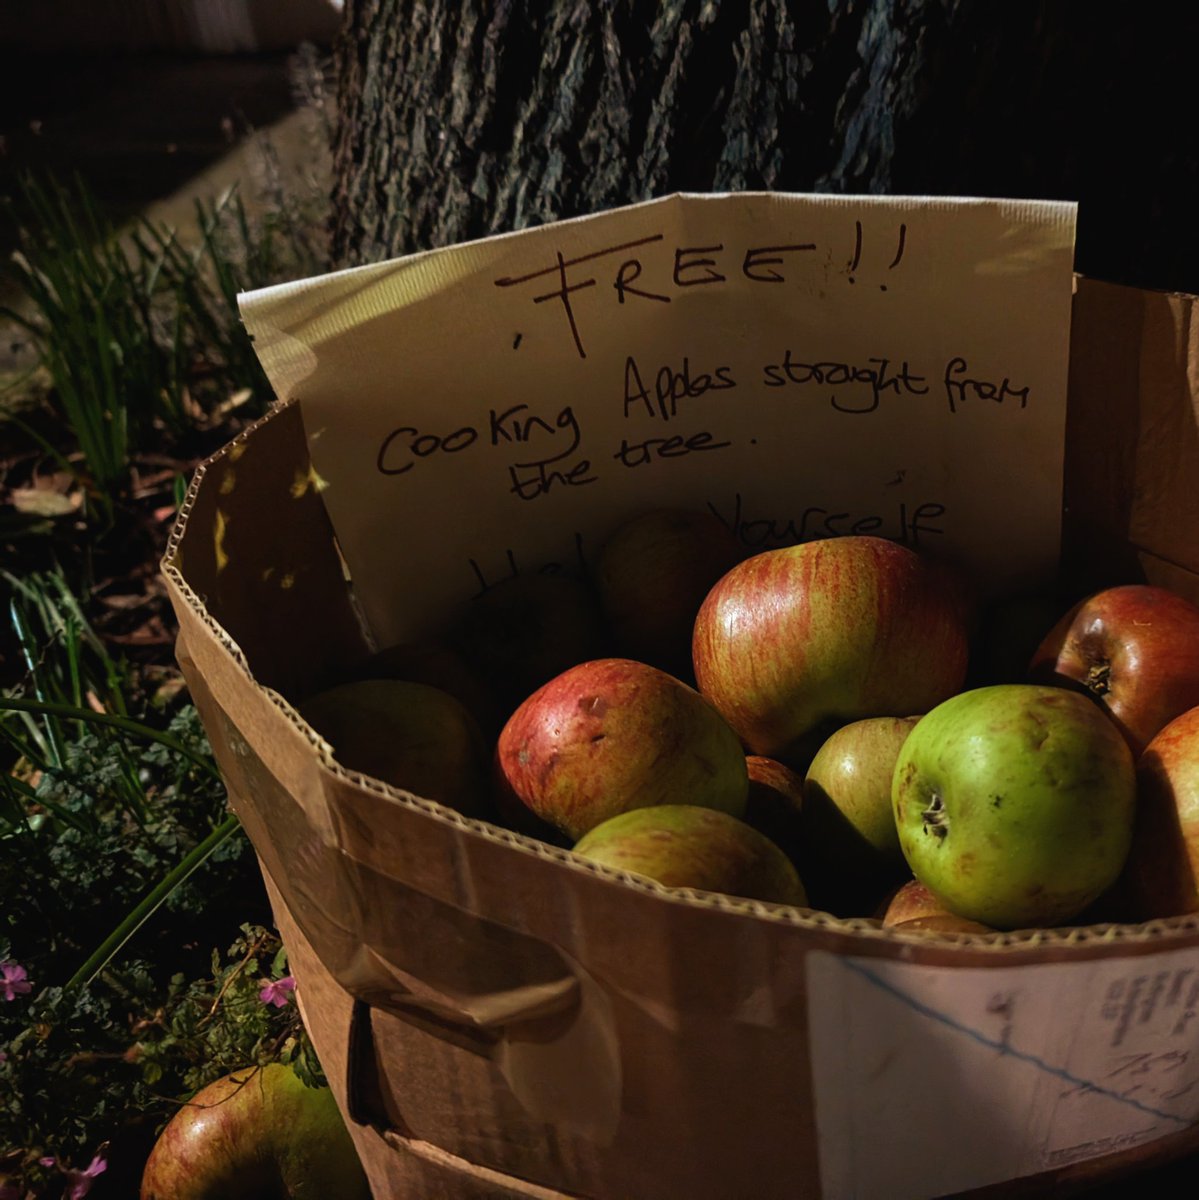 FREE!!
Cooking Apples straight from
the tree.
Yourself